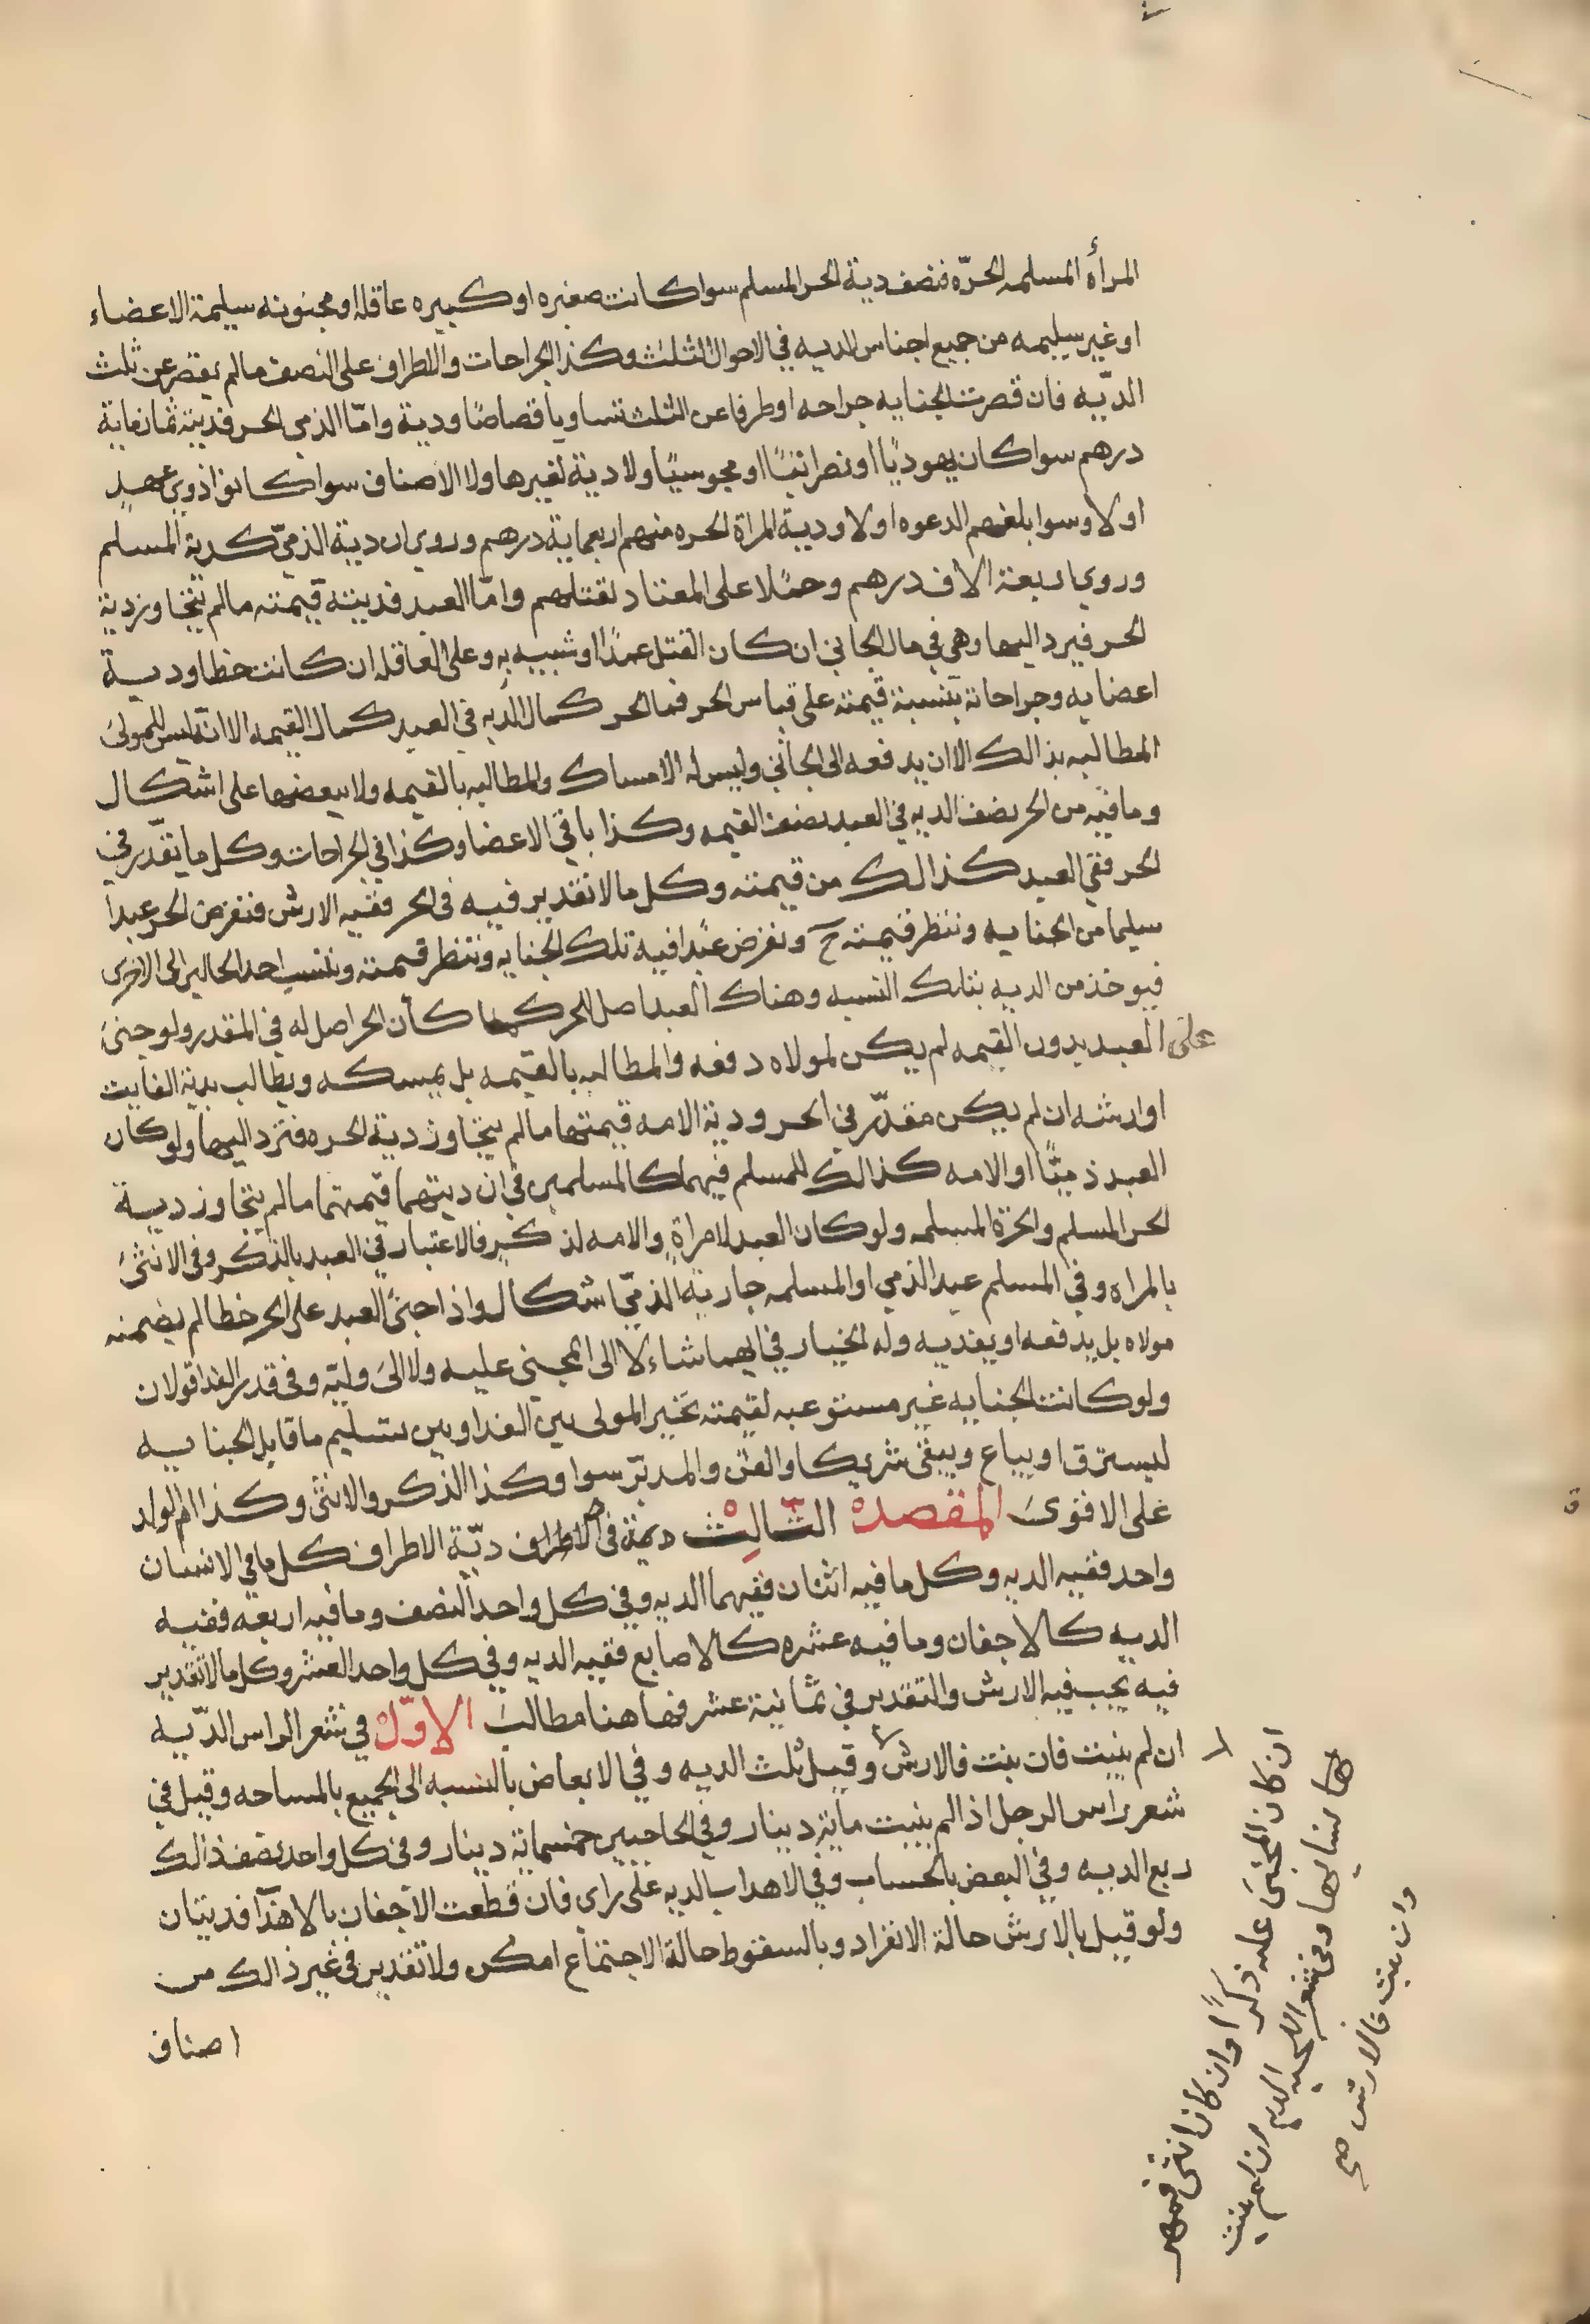 المرأة المسلمه الحرّه فنصف دية الحر المسلم سوا كانت صغيره او كبيره عاقله او مجنونه سليمة الاعضاء
او غير سليمه من جميع اجناس الديه في الاحوال الثلث وكذا الجراحات والاطراف على النصف مالم يقصر عن ثلث
الدّيه فان قصرت الجنايه جراحه او طرفا عن الثلث تساويا قصاصًا ودية وامّا الذمى الحر فديته ثمانماية
درهم سوا كان يهوديًا او نصرانيًا او مجوسيًا ولا دية لغيرها ولا الاصناف سوا كانوا ذوي عهدٍ
اولا وسوا بلغهم الدعوه اولا ودية المراة الحره منهم اربعماية درهم وروي ان دية الذميّ كدية المسلم
وروي اربعة الاف درهم وحملا على المعتاد لقتلهم وامّا العبد فديته قيمته مالم يتجاوز دية
الحر فيرد اليها وهي في مال الجاني ان كان القتل عمدًا او شبيه به وعلى العاقله ان كانت خطا ودية
اعضايه وجراحاته بنسبة قيمته على قياس الحر فما الحر كمال الديه في العبد كمال القيمه الا انّه ليس للمولىَ
المطالبه بذالك الا ان يدفعه الى الجاني وليس له الامساك والمطالبه بالقيمه ولا ببعضها على اشكال
وما فيه من الحر نصف الديه في العبد نصف القيمه وكذا باقي الاعضا وكذا في الجراحات وكل ما تقدّر في
الحر ففي العبد كذالك من قيمته وكل ما لا تقدير فيه فى الحر ففيه الارش فنفرض الحر عبدا
سليما من الجنايه وننظر قيمته ح ونفرض عبدًا فيه تلك الجنايه وننظر قيمته وننسب احد الحالين الى الاخرى
فيوخذ من الديه بتلك النسبه وهناك العبد اصل للحر كما كأن الحر اصل له في المقدر ولو جنىَ
على العبد بدون القيمه لم يكن لمولاه دفعه والمطالبه بالقيمه بل يمسكه ويطالب بدية الفايت
او ارشه ان لم يكن مقدّر في الحر ودية الامه قيمتها مالم يتجاوز دية الحره فترد اليها ولو كان
العبد ذميًّا او الامه كذالك للمسلم فيهما كالمسلمين في ان ديتهما قيمتهما مالم يتجاوز دية
الحر المسلم والحرّة المسلمه ولو كان العبد لامراةٍ والامه لذكرٍ فالاعتبار في العبد بالذكر وفى الانثىَ
بالمراه وفي المسلم عبد الذمي او المسلمه جارية الذميّ اشكال واذا جنىَ العبد على الحر خطا لم يضمنه
مولاه بل يدفعه او يفديه وله الخيار في ايهما شاء لا الى المجنى عليه ولا الىَ وليّه وفى قدر الفدا قولان
ولو كانت الجنايه غير مستوعبه لقيمته تخير المولى بين الفدا وبين تسليم ما قابل الجنايه
ليسترق او يباع ويبقى شريكا والقن والمدبرّ سوا وكذا الذكر والانثى وكذا ام الولد
على الاقوىَ المقصد الثّالث دية فى الاطراف ديّة الاطراف كل ما في الانسان
واحد ففيه الديه وكل ما فيه اثنان ففيهما الديه وفي كل واحد النصف وما فيه اربعه ففيه
الديه كالاجفان وما فيه عشره كالاصابع ففيه الديه وفي كل واحد العشر وكل ما لا تقدير
فيه يجب فيه الارش والتقدير في ثمانية عشر فهاهنا مطالبَ الاوّل في شعر الراس الدّيه
ان لم ينبت فان نبت فالارش وقيل ثلث الديه وفي الابعاض بالنسبه الى الجميع بالمساحه وقيل في
شعر راس الرجل اذا لم ينبت مايةِ دينار وفي الحاجبين خمسماية دينار وفى كل واحد نصف ذالك
ربع الديه وفي البعض بالحساب وفي الاهداب الديه على راى فان قطعت الاجفان بالاهدآ فديتان
ولو قيل بالارش حالة الانفراد وبالسقوط حالة الاجتماع امكن ولا تقدير فى غير ذالك من
اصناف
ان كان المجنىَ عليه ذكرًا وان كان انثى فمهر
ها نسايها وفى شعر اللحيه الديه ان لم ينبت
وان نبت فالارش صح